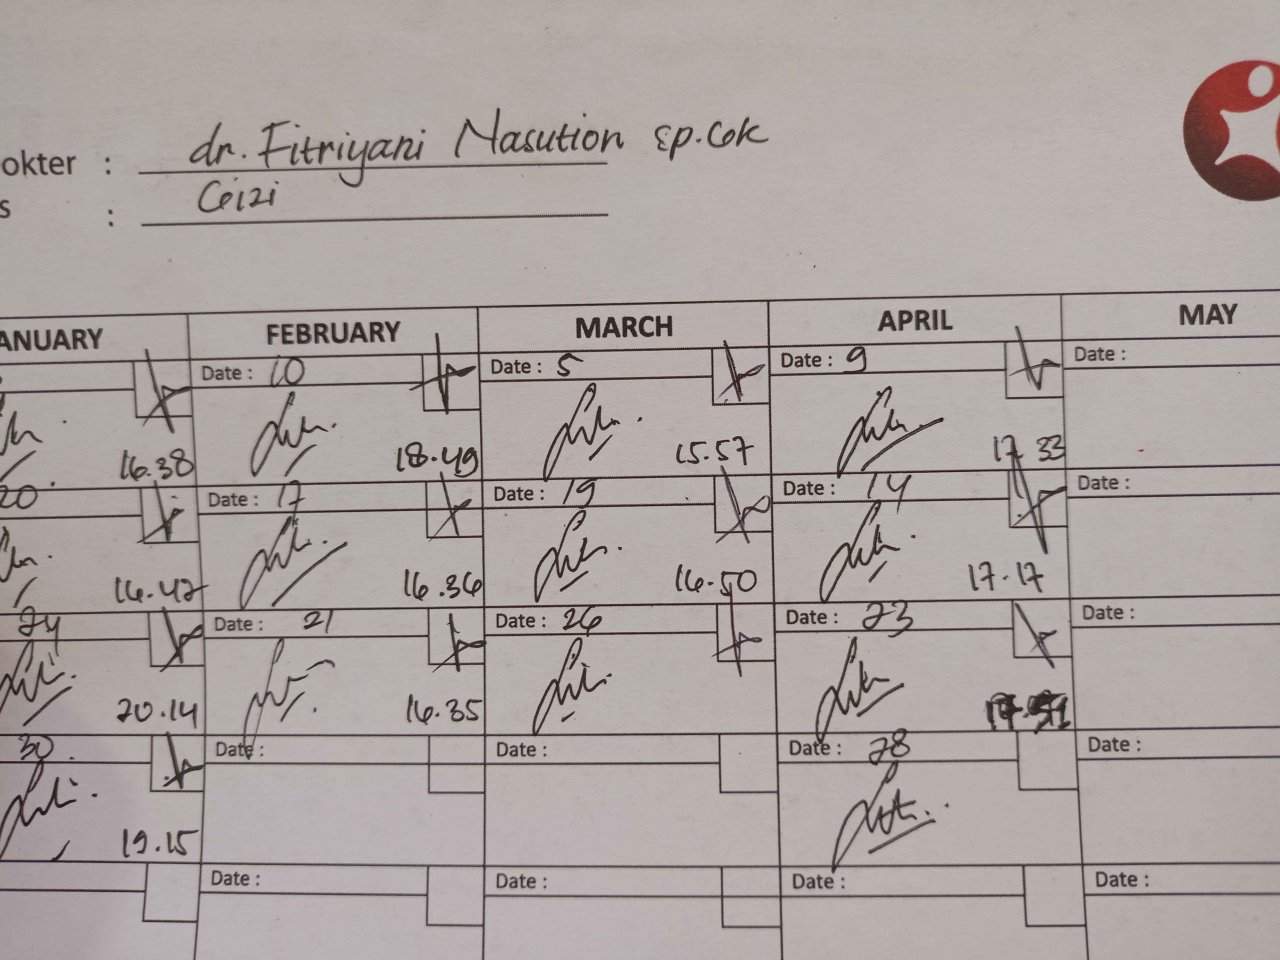 okter : dr. Fitriyani Nasution sp.Gk
s : Gizi
ANUARY FEBRUARY MARCH APRIL MAY
Date : 10 Date : 5 Date : 9 Date :
16.38 18.49 15.57 17 33
20 Date : 17 Date : 19 Date : 14 Date :
16.47 16.36 16.50 17.17
24 Date : 21 Date : 26 Date : 23 Date :
20.14 16.35
30 Date : Date : Date : 28 Date :
19.15
Date : Date : Date : Date :